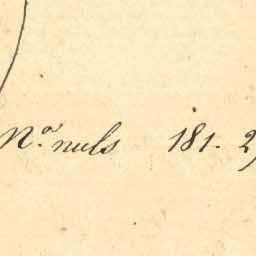 N.os nuls 181. 2